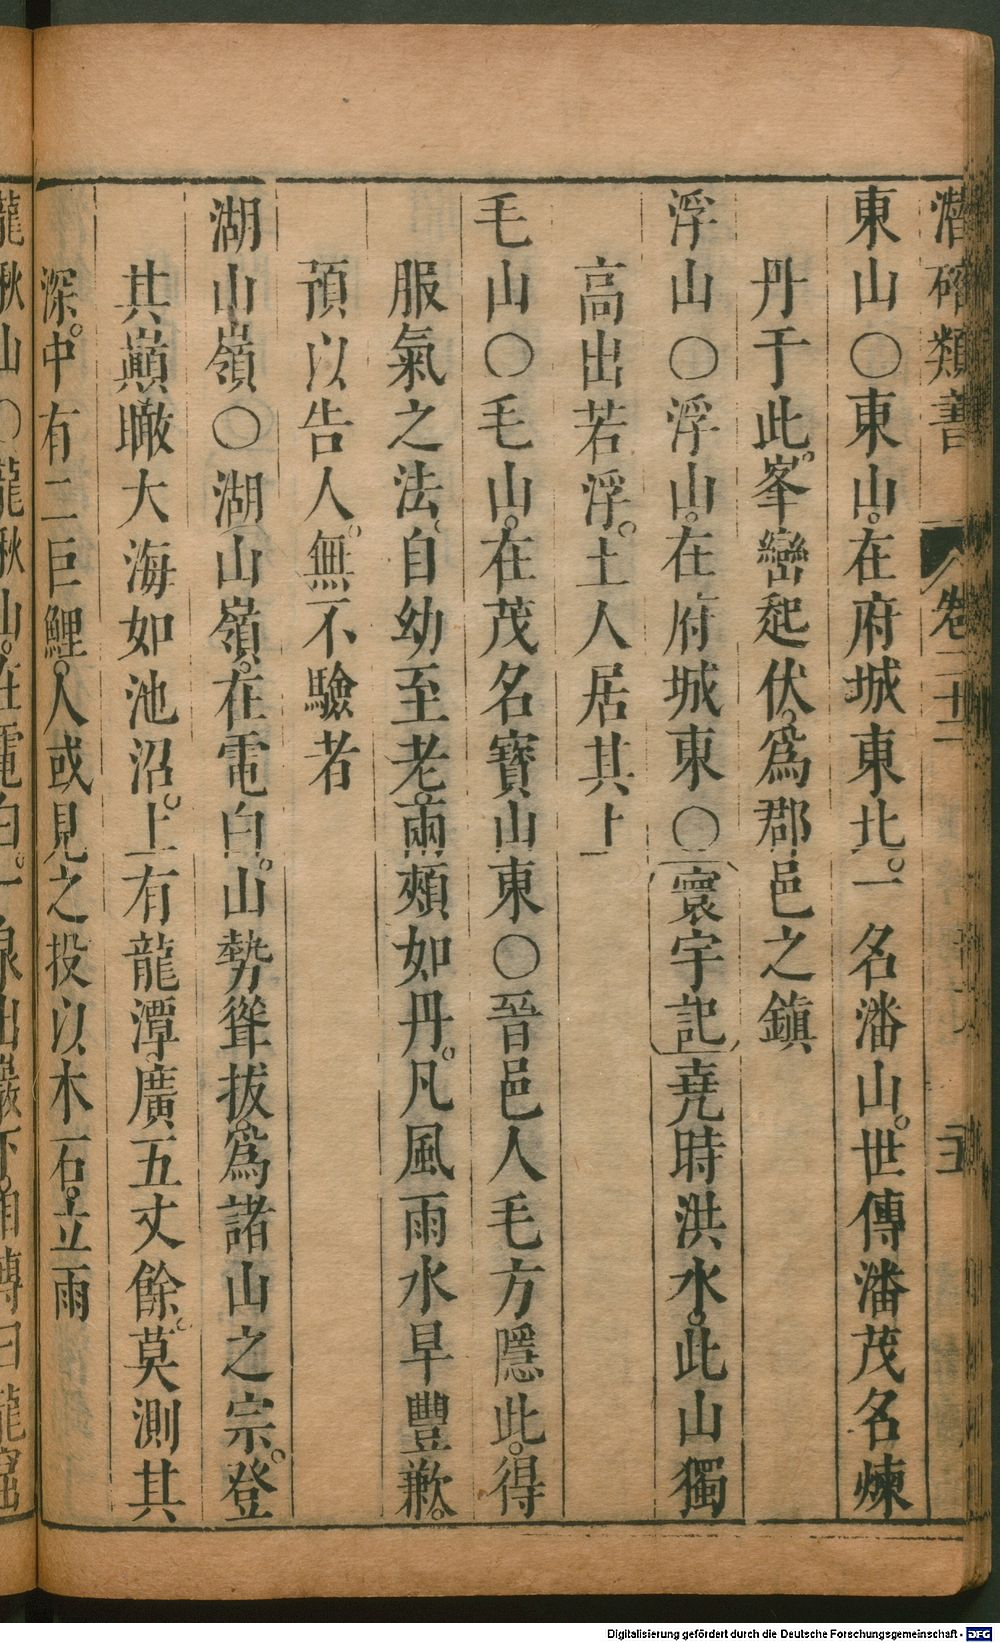 潛確類書 卷二十二
東山〇東山。在府城東北。一名潘山。世傳潘茂名煉
丹于此。峯巒起伏。爲郡邑之鎮
浮山〇浮山。在府城東〇寰宇記堯時洪水。此山獨
高出若浮。土人居其上
毛山〇毛山。在茂名寶山東〇晉邑人毛方隱此。得
服氣之法。自幼至老。兩頰如丹。凡風雨水旱豐歉。
預以告人。無不驗者
湖山嶺〇湖山嶺。在電白。山勢聳拔。爲諸山之宗。登
其巔瞰大海如池沼。上有龍潭。廣五丈餘。莫測其
深。中有二巨鯉。人或見之投以木石。立雨
龍湫山〇龍湫山。在電白。一泉出巖下。相傳曰龍窟
Digitalisierung gefördert durch die Deutsche Forschungsgemeinschaft - DFG